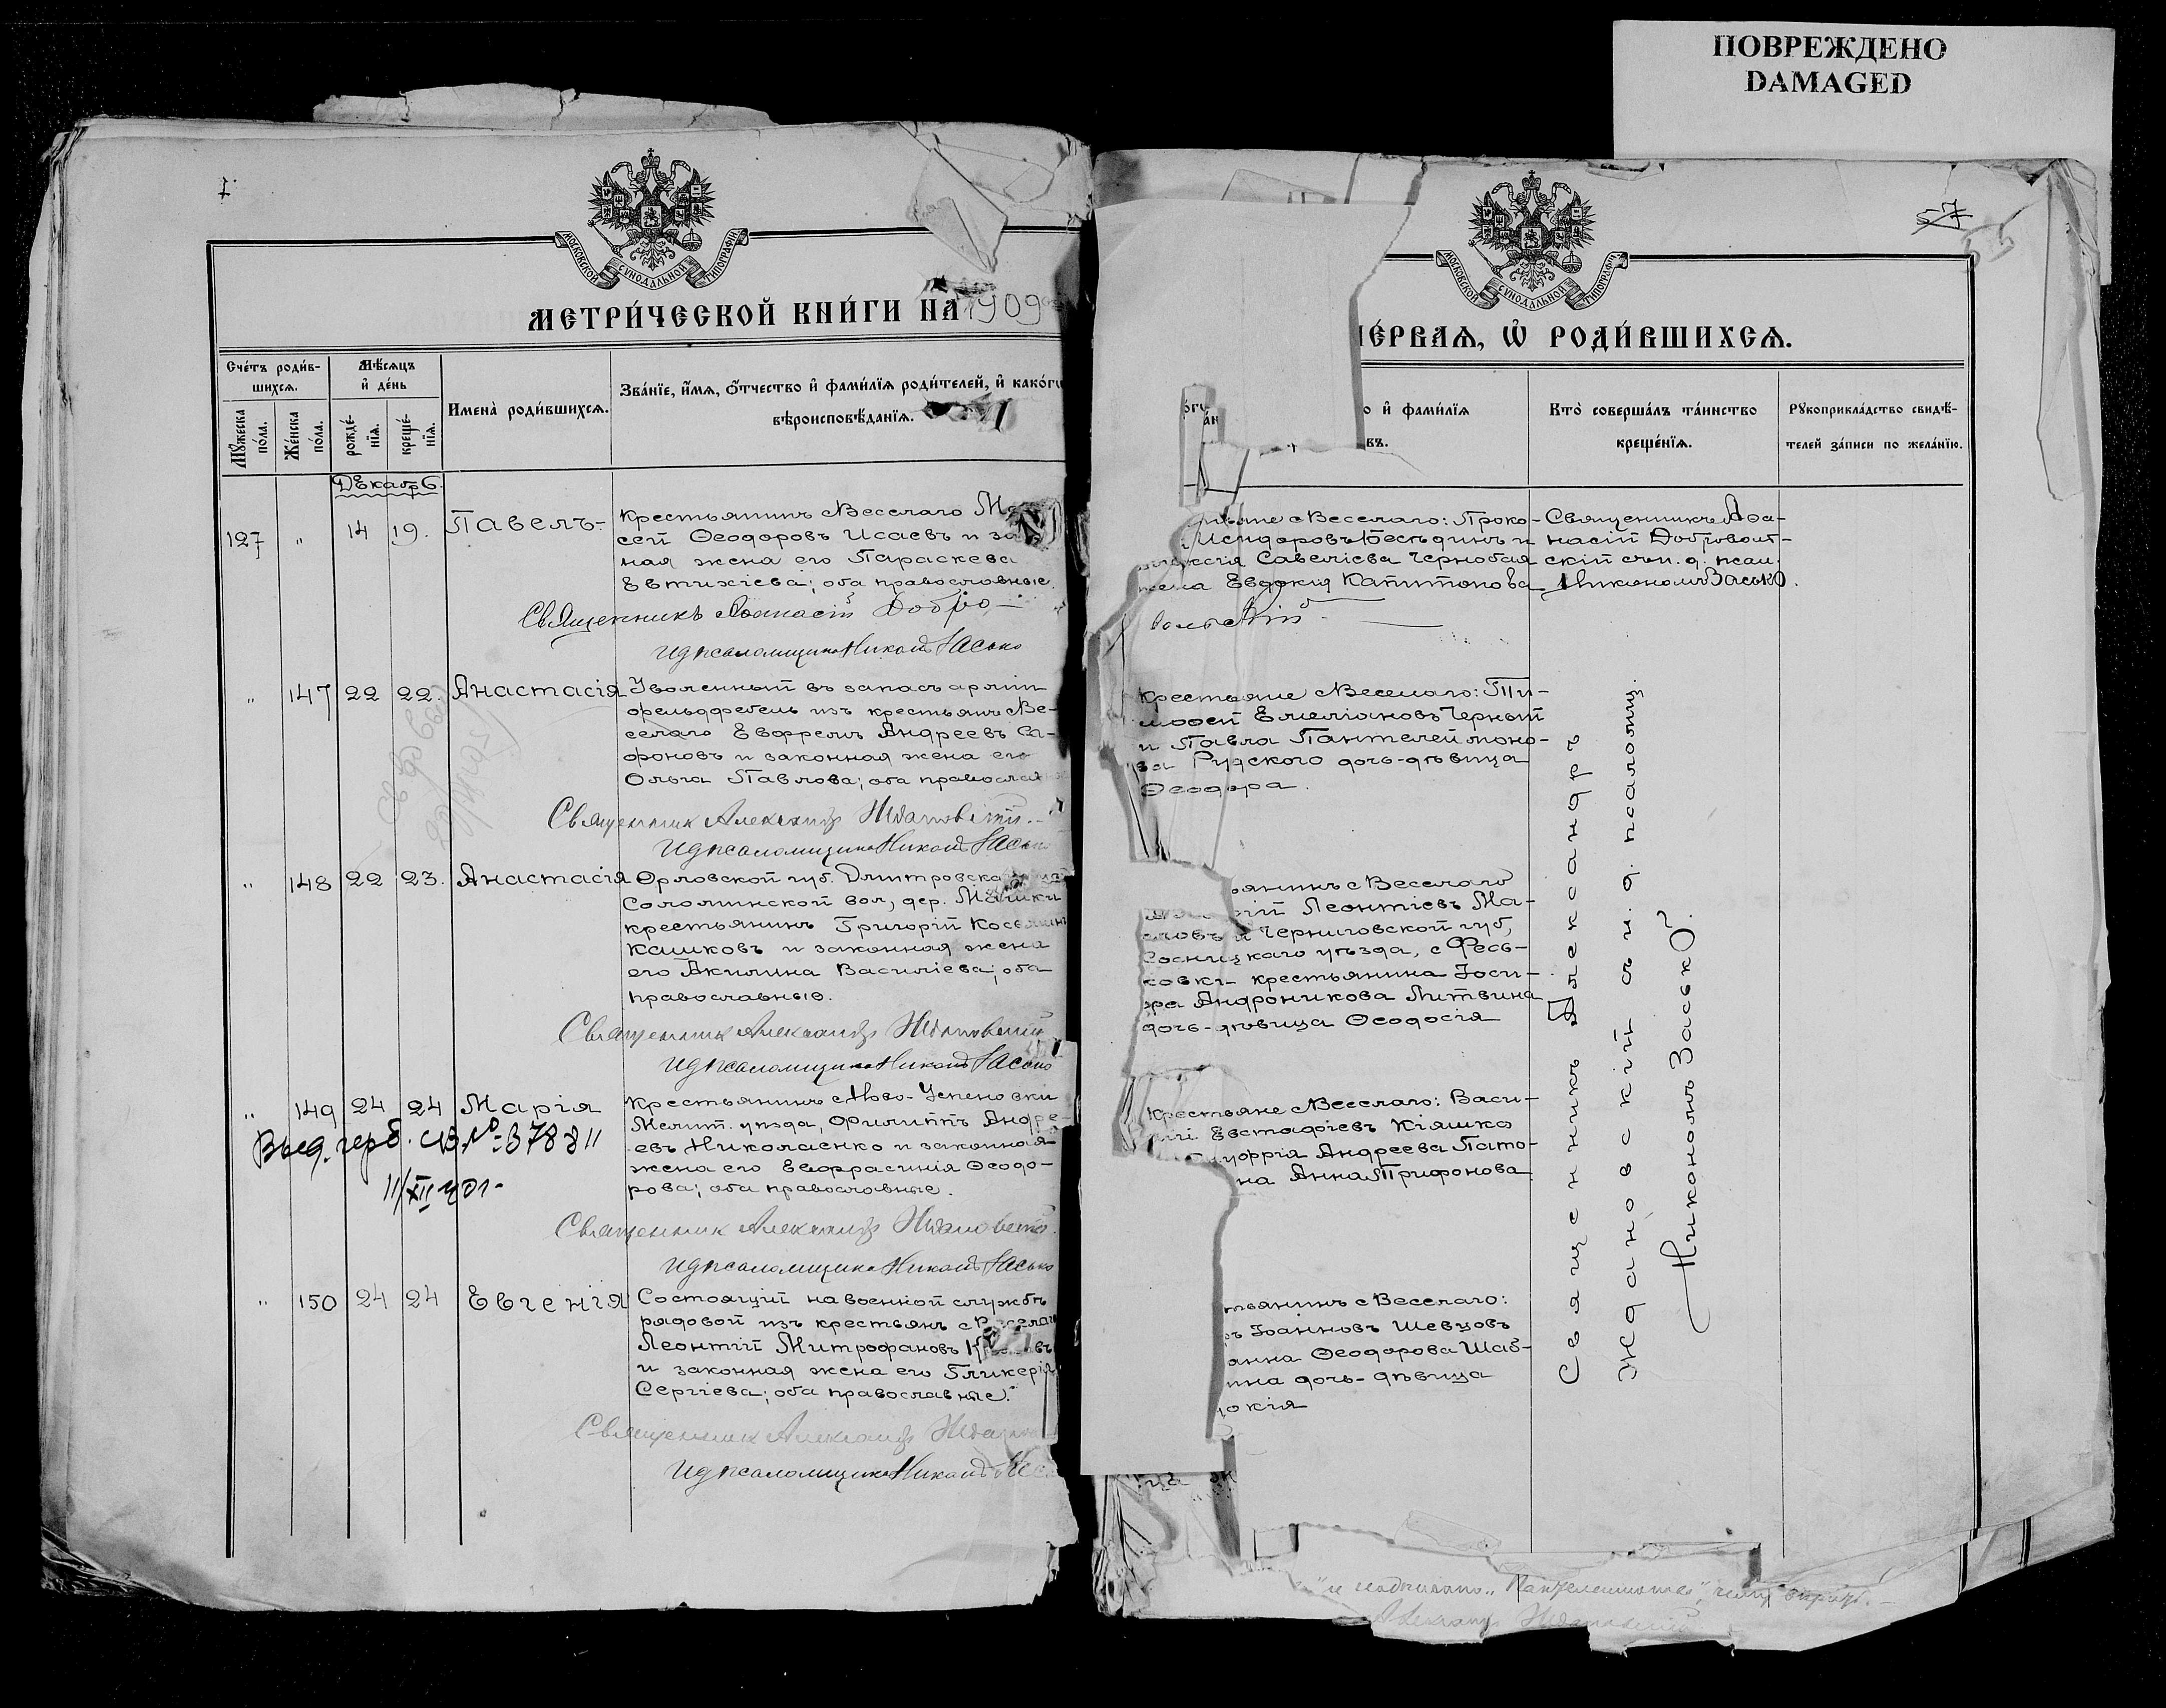 ПОВРЕЖДЕНО
DAMAGED
МОСКОВСКОЙ СѴНОДАЛЬНОЙ ТИПОГРАФІИ
МЕТРИ́ЧЕСКОЙ КНИ́ГИ НА 1909
Сче́тъ роди́в-
шихся.
Мѣ́сяцъ
и҆ де́нь
Мꙋ́жеска
по́ла.
Же́нска
по́ла.
рожде́-
нїя.
креще́-
нїя.
Имена̀ роди́вшихся.
Зва́нїе, и҆́мя, ѻ҆́тчество и҆ фами́лїя роди́телей, и҆ како́гѡ
вѣроисповѣ́данїя.
Декабр
127 " 14 19. Павелъ
Крестьянинъ с Веселаго
сей Ѳеодоровъ Исаевъ и за
ная жена его Параскева
Евтихіева; оба православные.
Священникъ Аѳанасій Добро-
И д псаломщика Никонъ Засько
" 147 22 22. Анастасія
Уволенный въ запасъ арміи
фельдфебель изъ крестьянъ с Ве-
селаго Евфремъ Андреевъ Са-
фоновъ и законная жена его
Ольга Павлова; оба православ
Священник Александр Ждановскій
И д псаломщика Никонъ Засько
" 148 22 23. Анастасія
Орловской губ. Дмитровска
Соломинской вол, дер.
крестьянинъ Григорій
Кашковъ и законная жена
его Акилина Василіева; оба
православные.
Священник Александр Ждановскій
И д псаломщика Никонъ Засько
" 149 24 24 Марія
Крестьянинъ с Ново-Успеновки
Мелит. уѣзда, Филиппъ Андре-
евъ Николаенко и законная
жена его Евфрасинія Ѳеодо-
рова; оба православные.
Выд. герб. св. №
Священник Александр Ждановскій
И д псаломщика Никонъ Засько
" 150 24 24 Евгенія
Состоящій на военной службѣ
рядовой изъ крестьянъ с Веселаго
Леонтій Митрофановъ
и законная жена его Гликерія
Сергіева; оба православные.
Священник Александр
И д псаломщика Никонъ
57
МОСКОВСКОЙ СѴНОДАЛЬНОЙ ТИПОГРАФІИ
ПЕ́РВАЯ, Ѡ҆ РОДИ́ВШИХСЯ.
и҆ фами́лїя
Кто̀ соверша́лъ та́инство
креще́нїя.
Рꙋкоприкла́дство свидѣ́-
телей за́писи по жела́нїю.
с Веселаго: Проко-
Исидоровъ Бесѣдинъ и
Савеліева Чернобая
жена Евдокия Капитонова
Священникъ Аѳа-
насій Доброволь-
скій съ и. д. псал.
Никономъ Засько.
вольскій
Крестьяне с Веселаго: Ти-
моѳей Емеліановъ Черный
и Павла Пантелеймоно-
ва Рудского дочь-дѣвица
Ѳеодора.
с Веселаго
Леонтіевъ Ма-
и Черниговской губ,
Сосницкаго уѣзда, с
крестьянина
Андроникова Литвина
дочь-дѣвица Ѳеодосія
Крестьяне с Веселаго: Васи-
лій Евстафіевъ Кіяшко
Андреева
Анна Трифонова
с Веселаго:
Іоанновъ Шевцовъ
Ѳеодорова Шаб-
дочь-дѣвица
Священникъ Александръ
Ждановскій съ и. д. псаломщ.
Никономъ Засько.